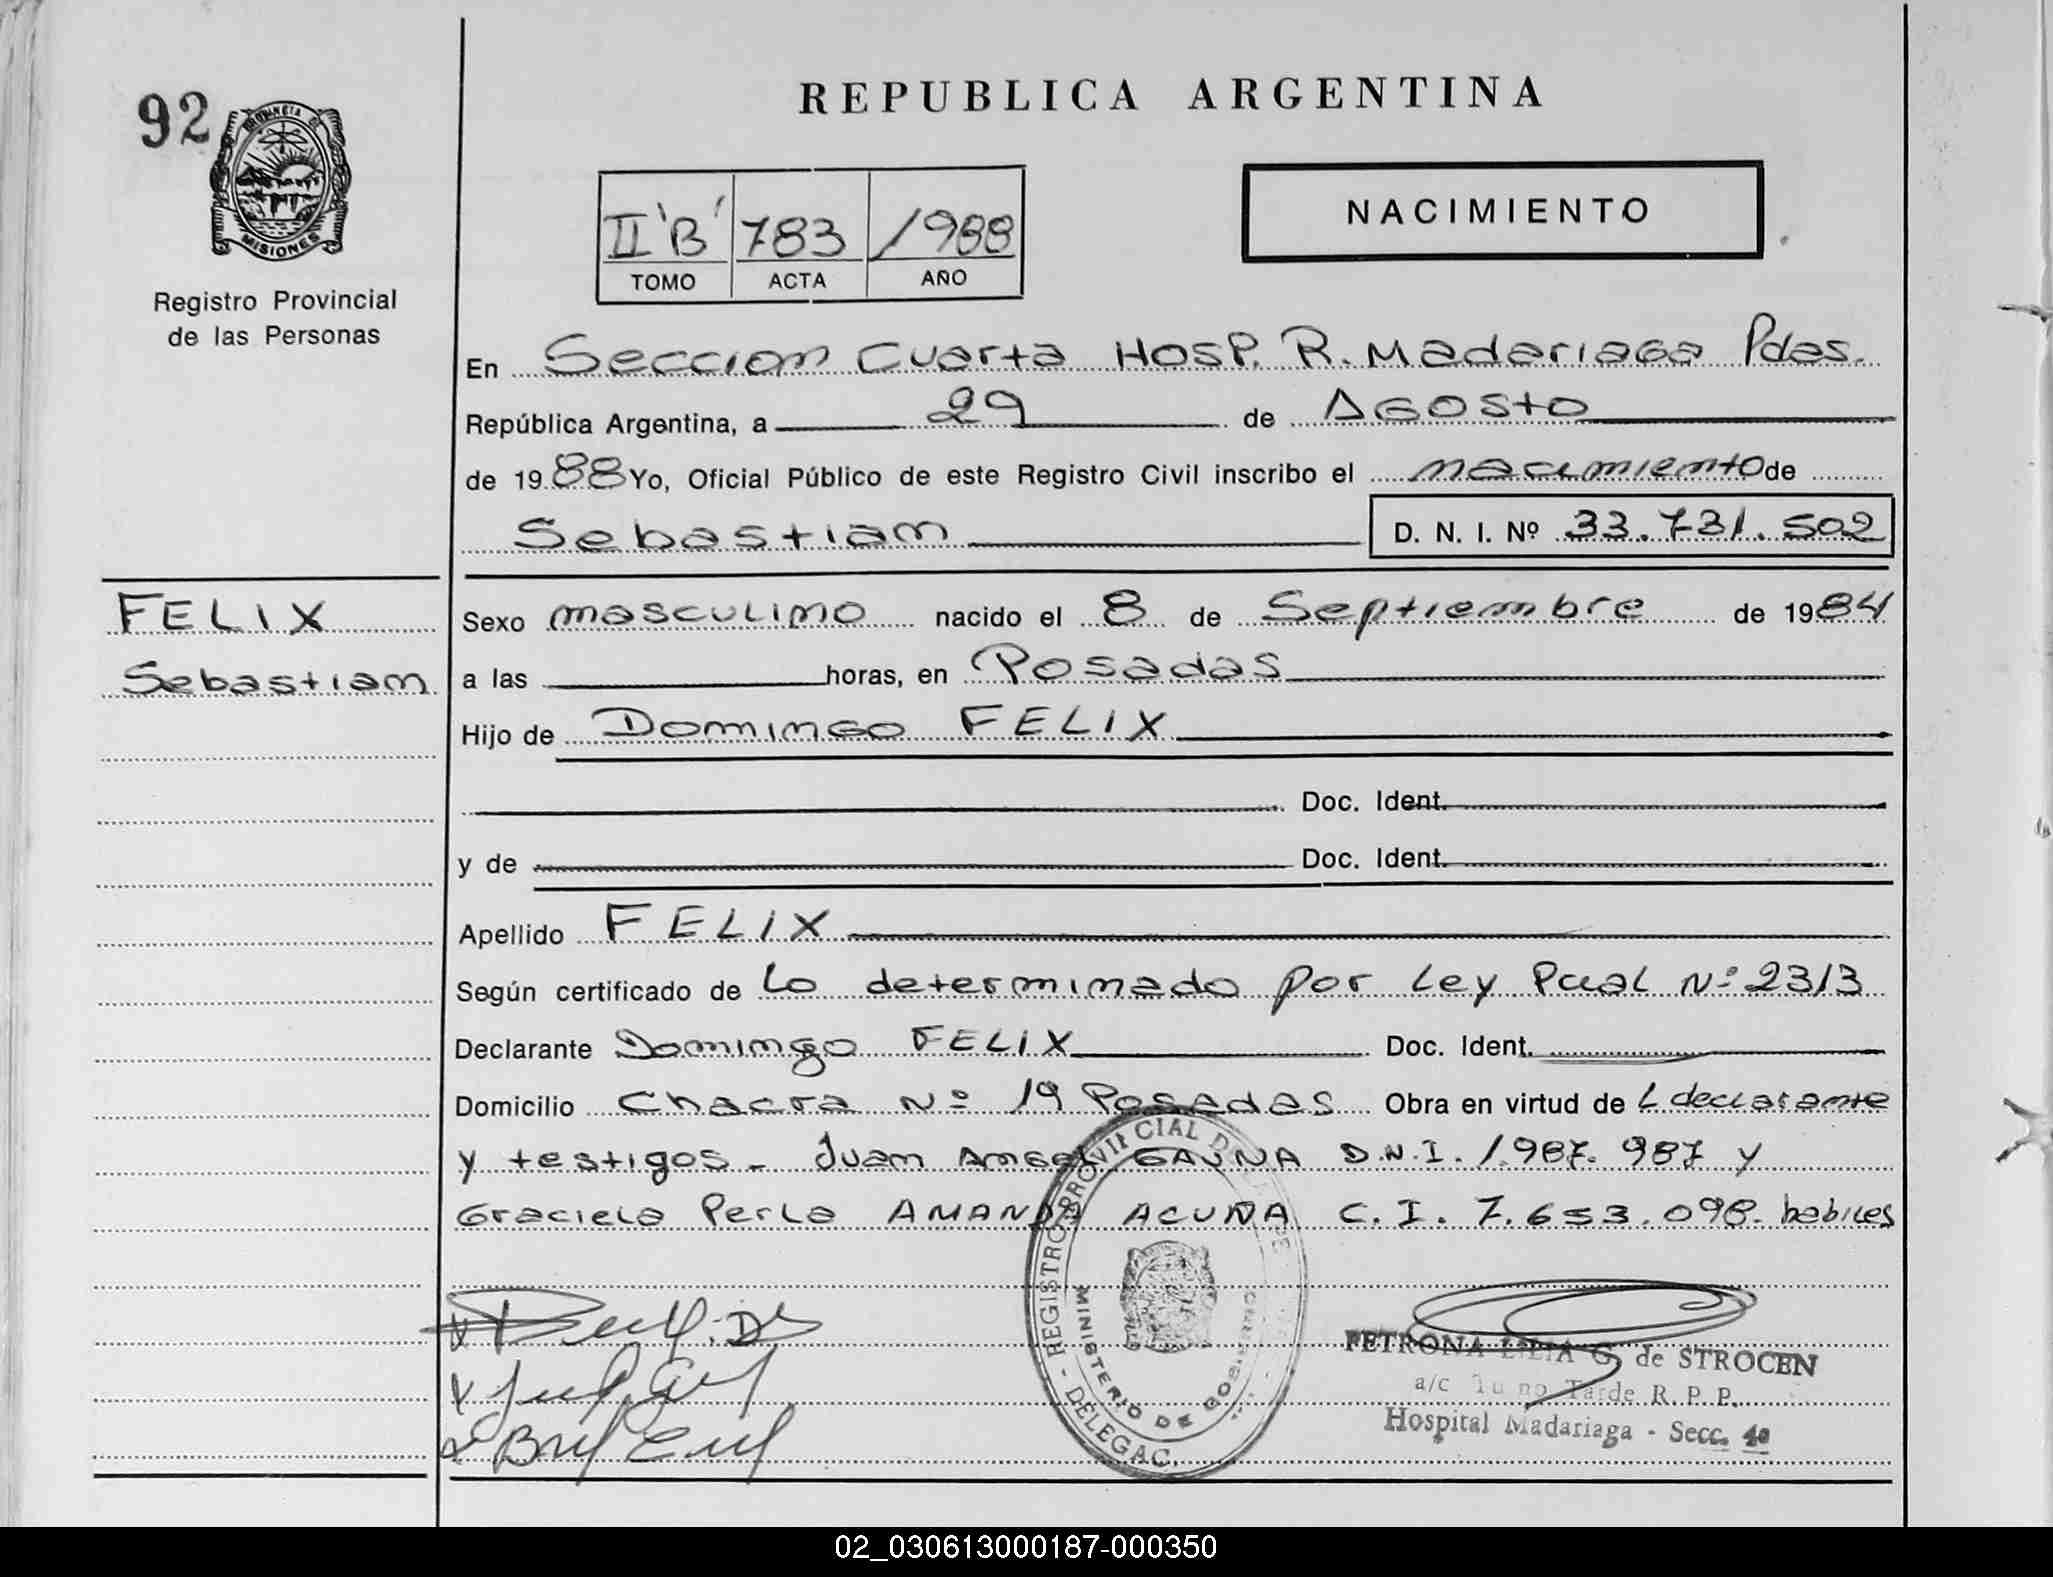 REPUBLICA ARGENTINA
92
PROVINCIA DE
MISIONES
Registro Provincial
de las Personas
II 'B' 783 1988
TOMO ACTA AÑO
NACIMIENTO
En Seccion Cuarta Hosp. R. Madariaga Pdas.
República Argentina, a 29 de Agosto
de 1988 Yo, Oficial Público de este Registro Civil inscribo el nacimiento de
Sebastian D. N. I. Nº 33.731.502
FELIX
Sebastian
Sexo masculino nacido el 8 de Septiembre de 1984
a las horas, en Posadas
Hijo de Domingo FELIX
Doc. Ident.
y de Doc. Ident.
Apellido FELIX
Según certificado de Lo determinado por Ley Pcial Nº 2313
Declarante Domingo FELIX Doc. Ident.
Domicilio Chacra Nº 19 Posadas Obra en virtud de L declarante
y testigos - Juan Angel GAUNA D.N.I. 1.987.987 y
Graciela Perla AMANDA ACUÑA C.I. 7.653.098. habiles
REGISTRO PROVINCIAL DE
MINISTERIO DE GOBIERNO
DELEGAC.
PETRONA LILIA G. de STROCEN
a/c Turno Tarde R. P. P.
Hospital Madariaga - Secc. 4a
02_030613000187-000350